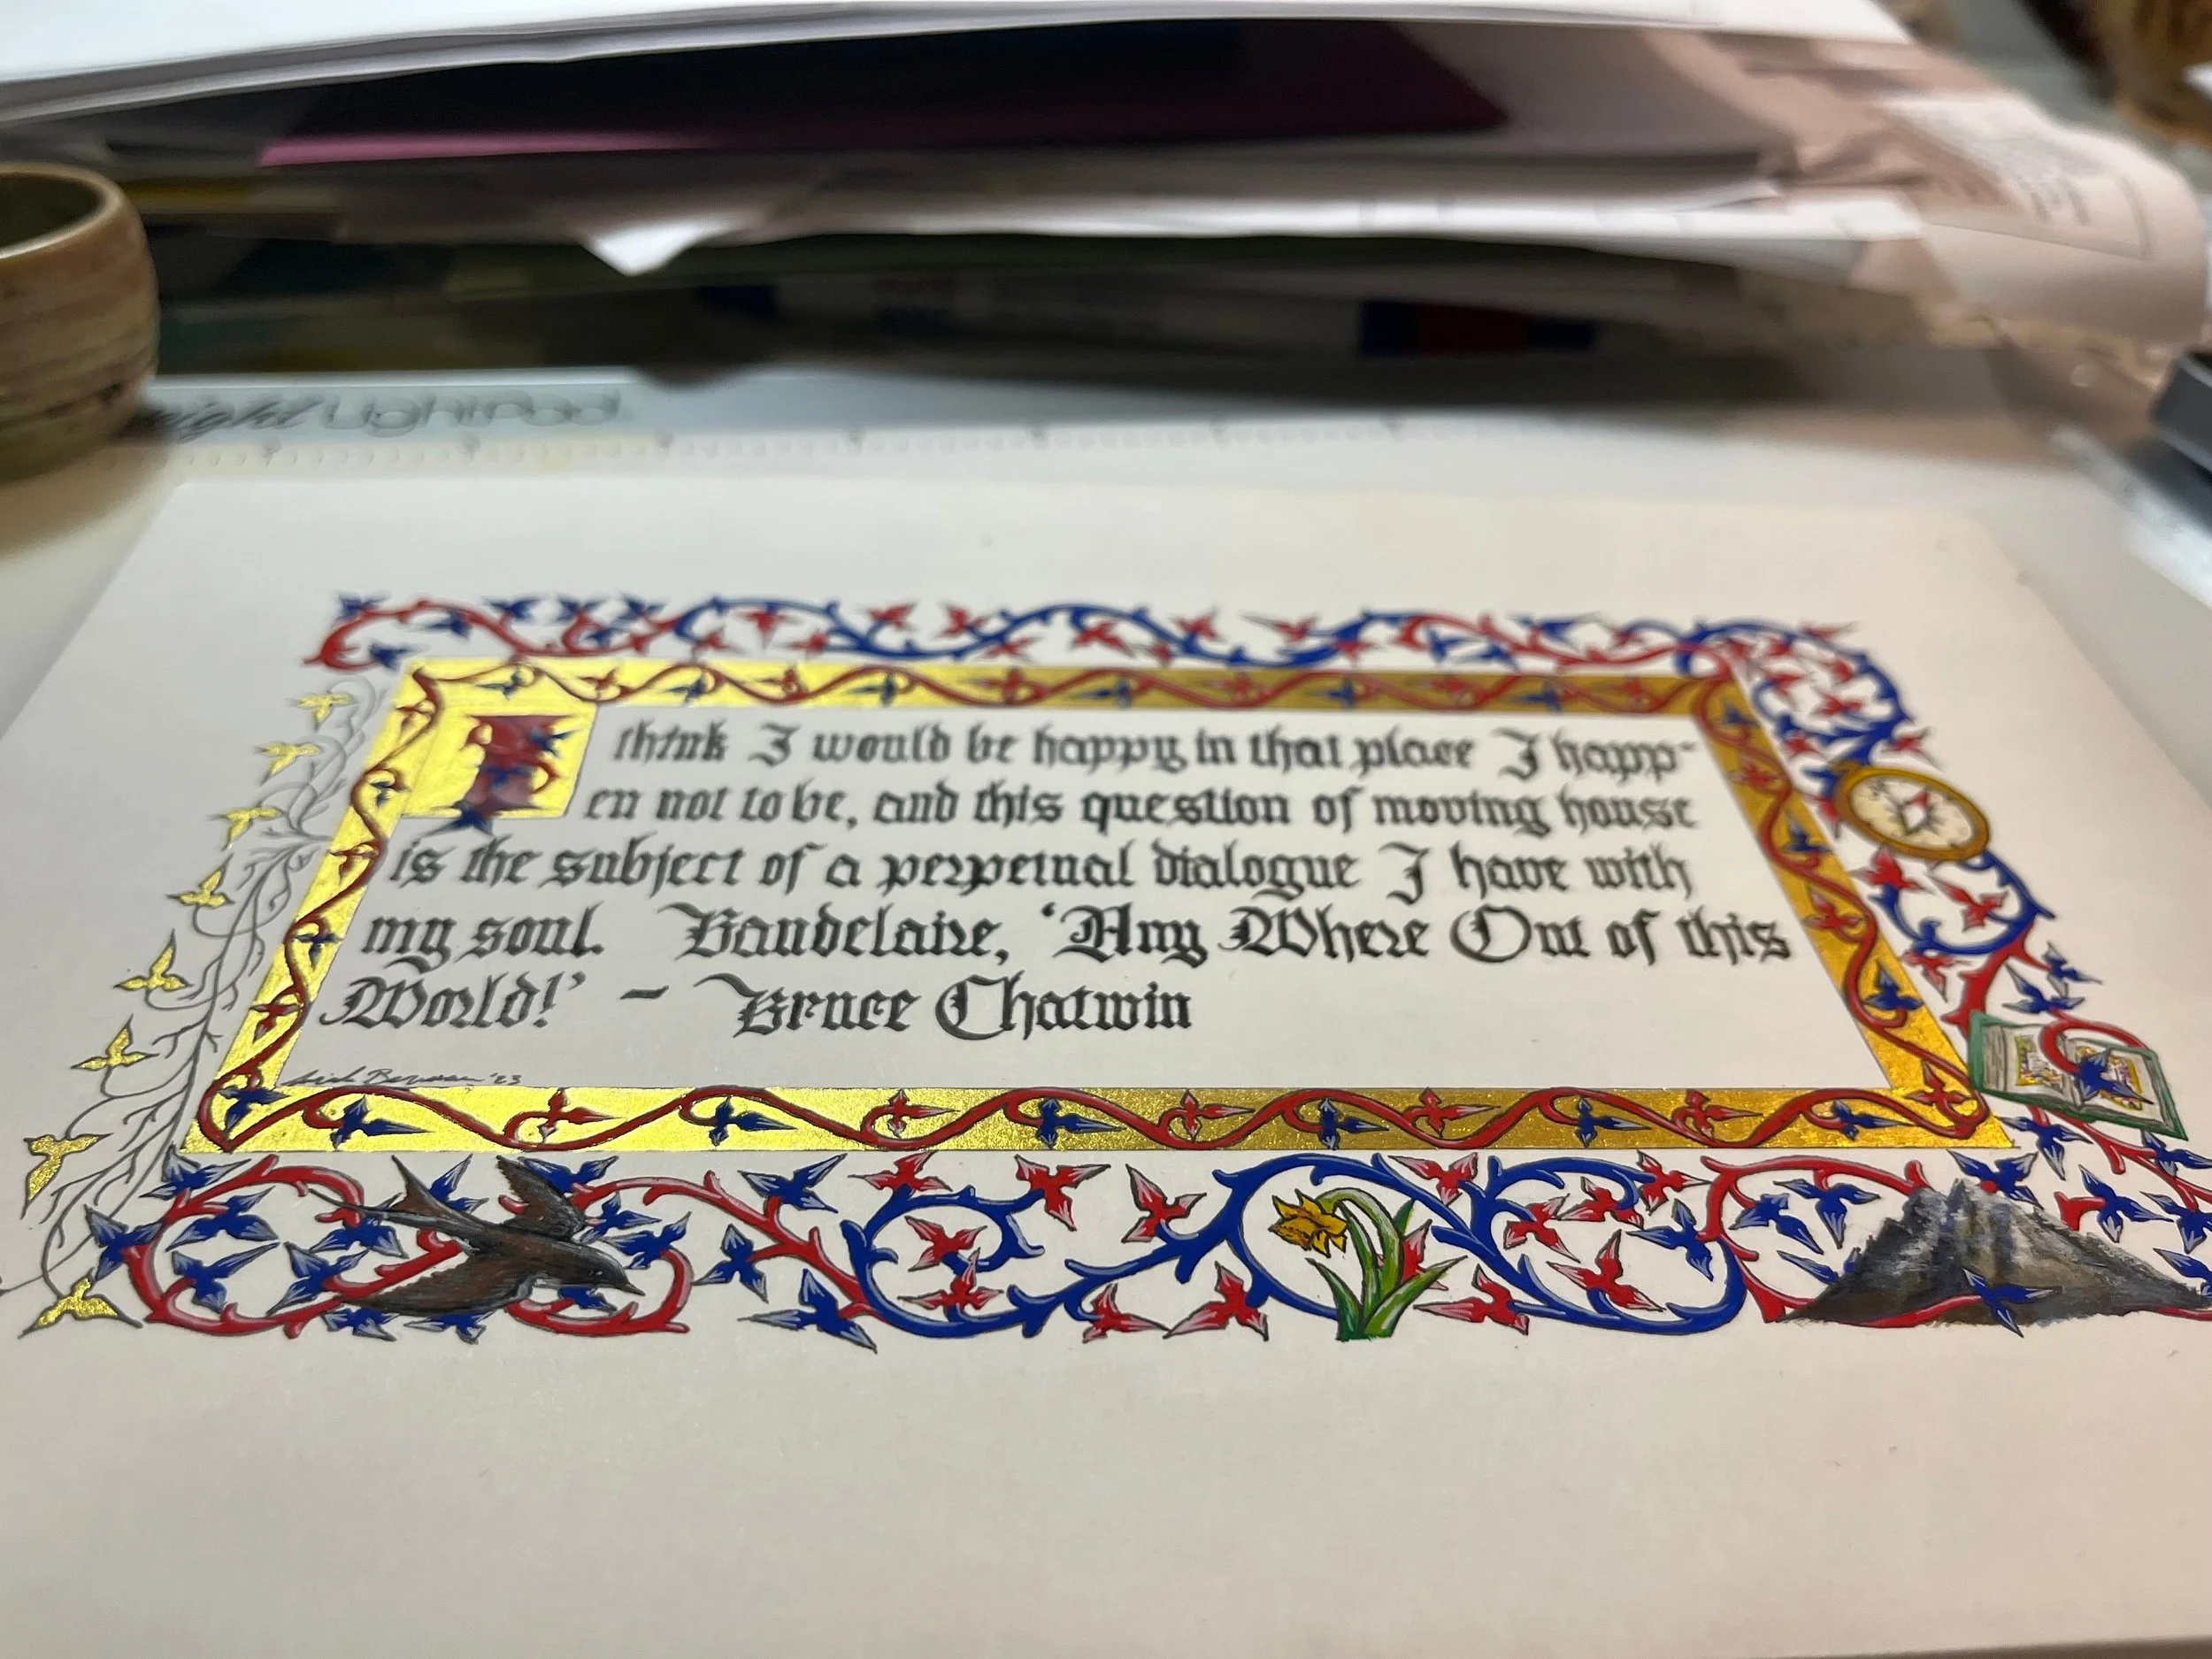 LightPad
I think I would be happy in that place I happ-
en not to be, and this question of moving house
is the subject of a perpetual dialogue I have with
my soul. Baudelaire, 'Any Where Out of this
World!' - Bruce Chatwin
'23